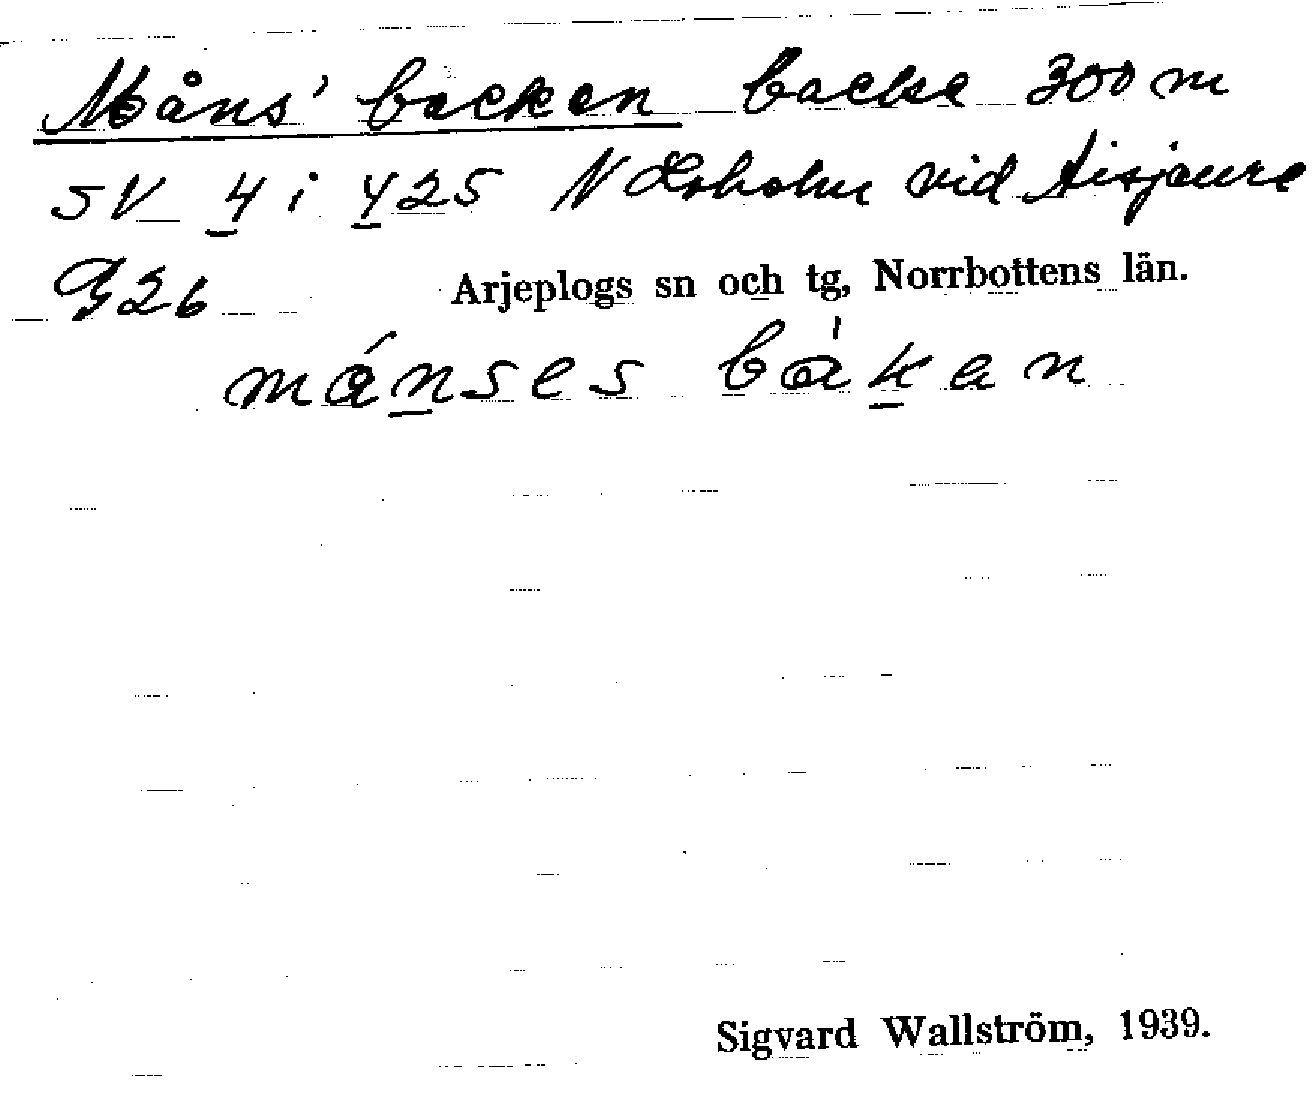 Måns' backen backe 300 m
SV 4 i 425 N Lövholm vid Aisjaure
G26 Arjeplogs sn och tg, Norrbottens län.
mánses bàkan
Sigvard Wallström, 1939.